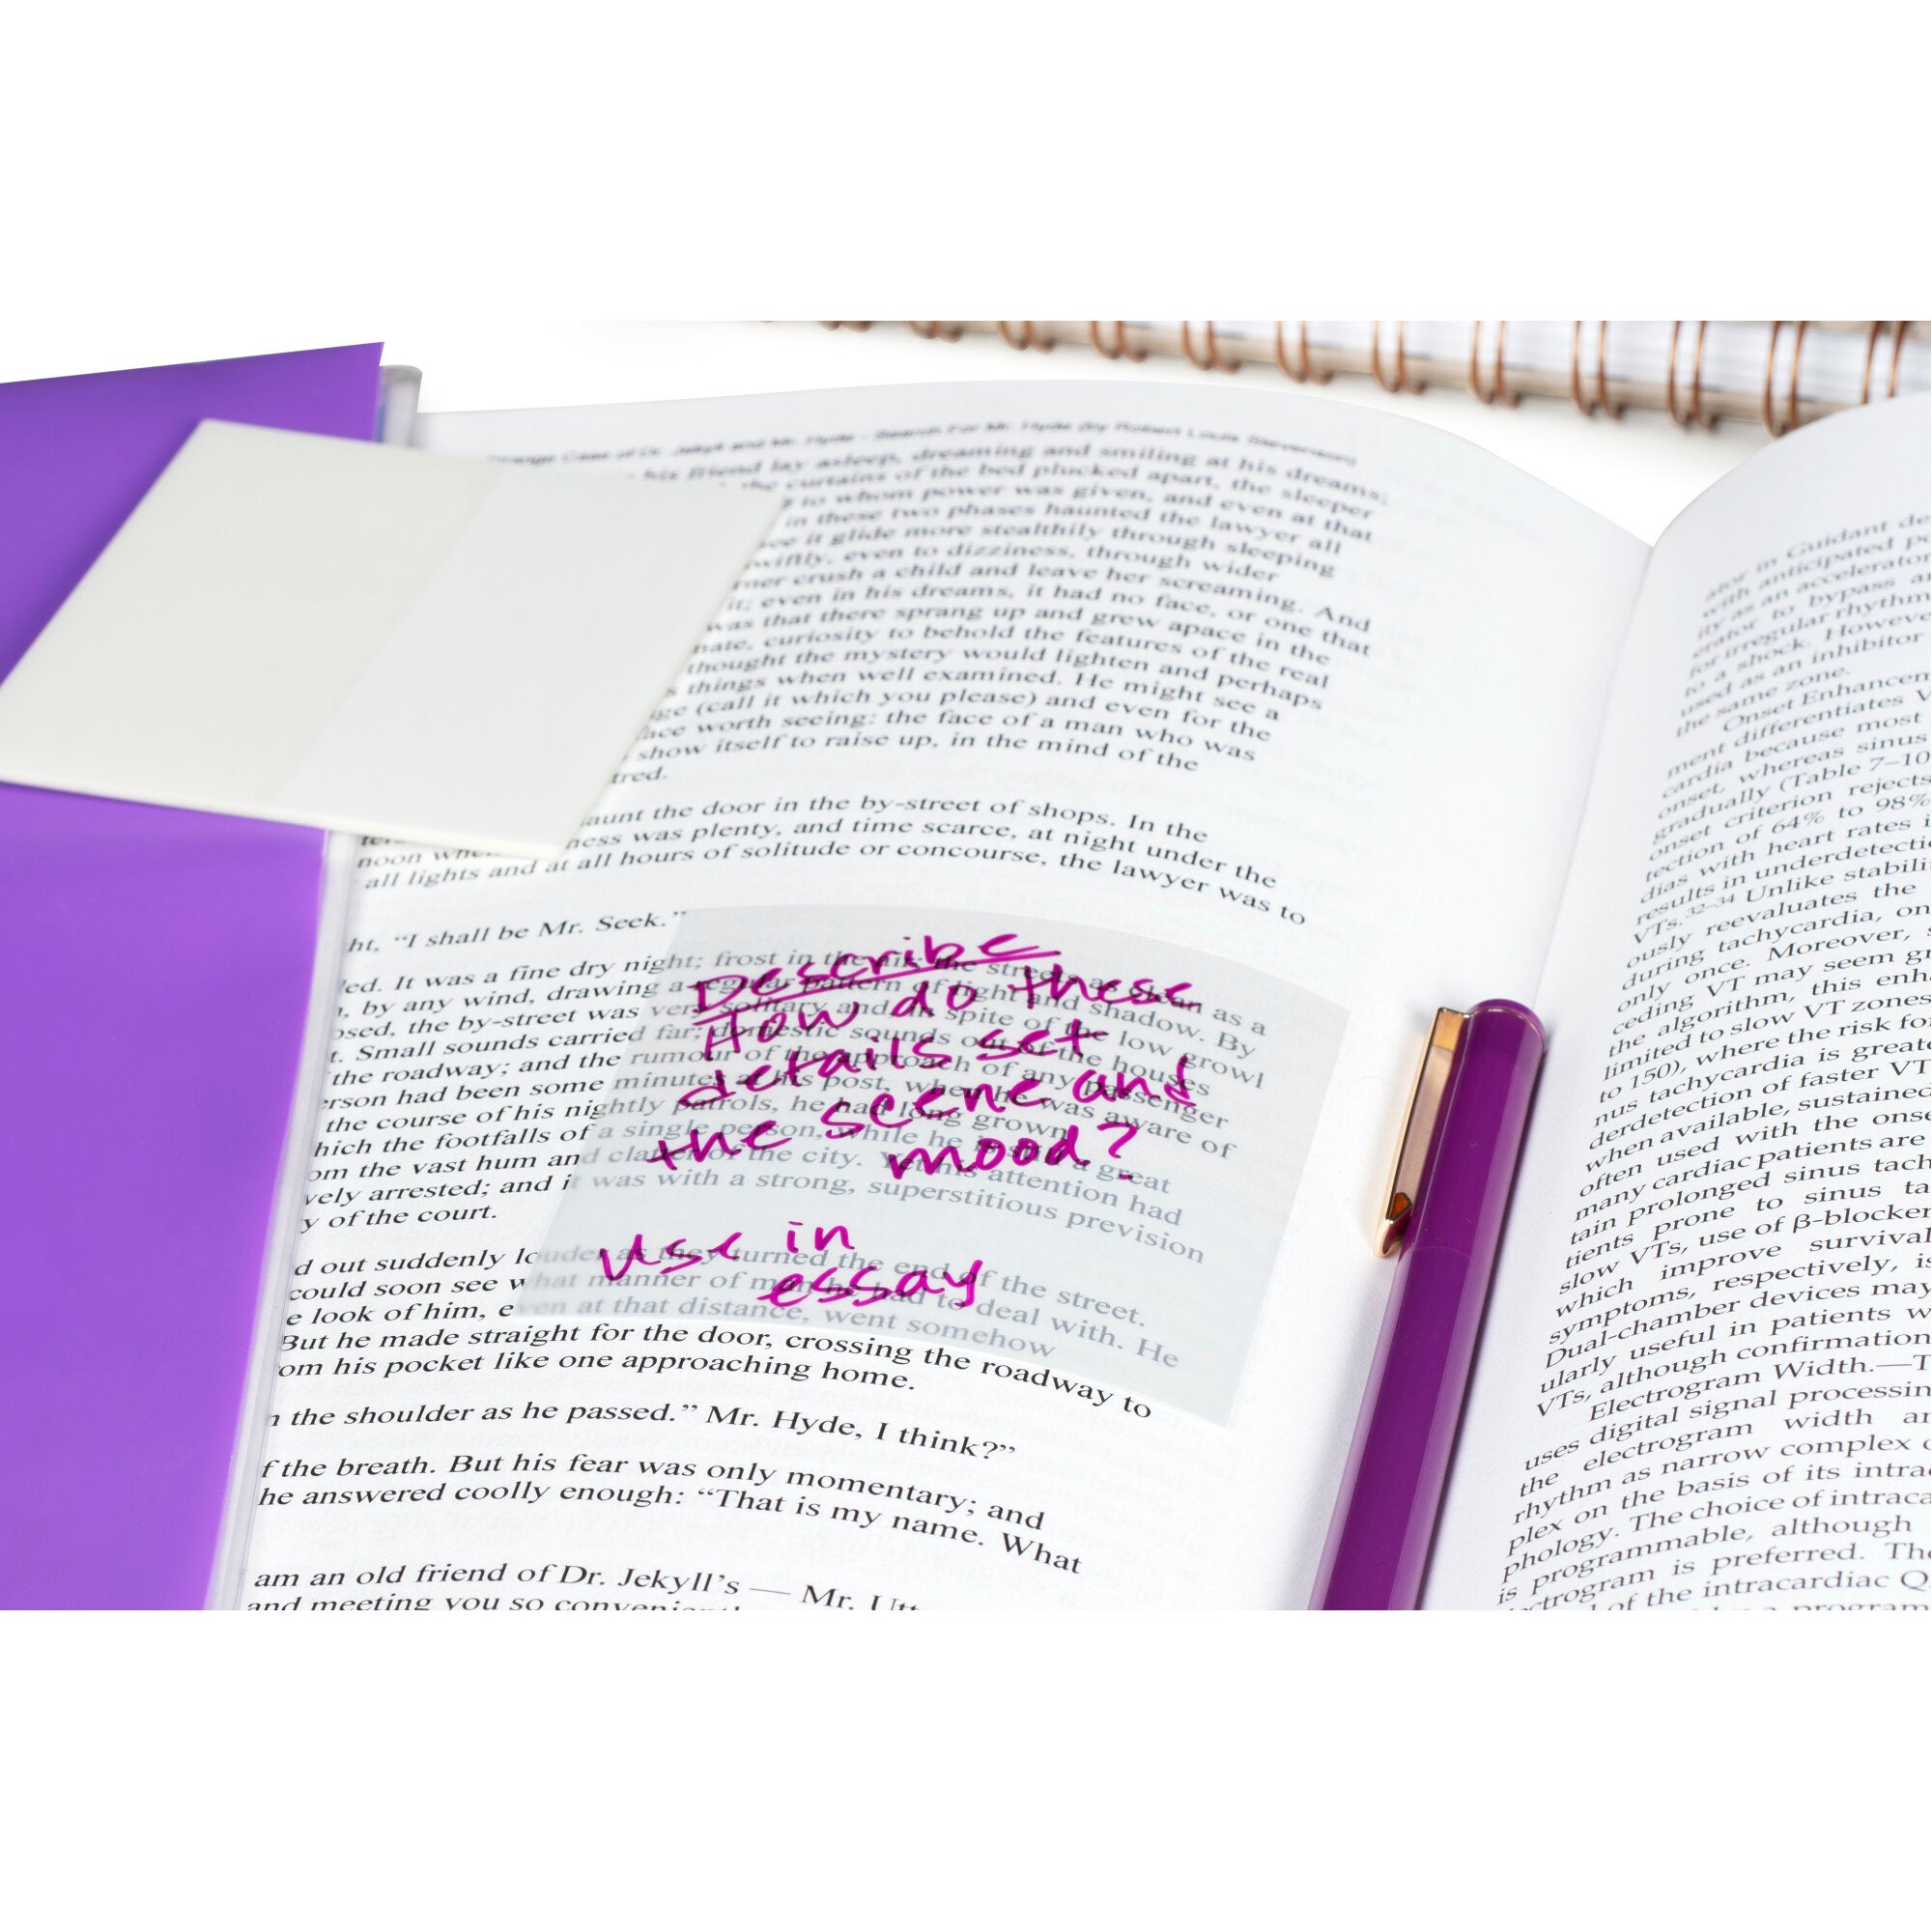 Strange Case of Dr. Jekyll and Mr. Hyde - Search For Mr. Hyde (by Robert Louis Stevenson)
his friend lay asleep, dreaming and smiling at his dreams;
the curtains of the bed plucked apart, the sleeper
to whom power was given, and even at that
in these two phases haunted the lawyer all
see it glide more stealthily through sleeping
swiftly, even to dizziness, through wider
crush a child and leave her screaming. And
it; even in his dreams, it had no face, or one that
was that there sprang up and grew apace in the
curiosity to behold the features of the real
thought the mystery would lighten and perhaps
things when well examined. He might see a
(call it which you please) and even for the
face worth seeing: the face of a man who was
show itself to raise up, in the mind of the
tred.
aunt the door in the by-street of shops. In the
noon when ness was plenty, and time scarce, at night under the
all lights and at all hours of solitude or concourse, the lawyer was to
ht, “I shall be Mr. Seek.”
led. It was a fine dry night; frost in the air; the streets as clean as a
, by any wind, drawing a regular pattern of light and shadow. By
osed, the by-street was very solitary and in spite of the low growl
t. Small sounds carried far; domestic sounds out of the houses
the roadway; and the rumour of the approach of any passenger
erson had been some minutes at his post, when he was aware of
the course of his nightly patrols, he had long grown
hich the footfalls of a single person, while he is still a great
om the vast hum and clatter of the city. Yet his attention had
vely arrested; and it was with a strong, superstitious prevision
y of the court.
d out suddenly louder as they turned the end of the street.
could soon see what manner of man he had to deal with. He
e look of him, even at that distance, went somehow
But he made straight for the door, crossing the roadway to
om his pocket like one approaching home.
n the shoulder as he passed.” Mr. Hyde, I think?”
f the breath. But his fear was only momentary; and
he answered coolly enough: “That is my name. What
am an old friend of Dr. Jekyll’s — Mr. Utt
and meeting you so convenient
Describe
How do these
details set
the scene and
mood?
use in
essay
ator in Guidant de
with anticipated p
ity as an accelerator
erator to bypass a
for irregular rhythm
to a shock. Howeve
used as an inhibitor
the same zone.
Onset Enhancem
ment differentiates V
cardia because most
onset, whereas sinus
gradually (Table 7–10
onset criterion rejects
tection of 64% to 98%
dias with heart rates i
results in underdetecti
VTs.32–34 Unlike stabili
ously reevaluates the
during tachycardia, on
only once. Moreover, s
ceding VT may seem gr
the algorithm, this enha
limited to slow VT zones
to 150), where the risk for
nus tachycardia is greate
derdetection of faster VT
when available, sustained
often used with the onse
many cardiac patients are
tain prolonged sinus tach
tients prone to sinus ta
slow VTs, use of β-blocker
which improve survival
symptoms, respectively, is
Dual-chamber devices may
ularly useful in patients w
VTs, although confirmation
Electrogram Width.—T
uses digital signal processin
the electrogram width an
rhythm as narrow complex o
plex on the basis of its intra
phology. The choice of intraca
is programmable, although
ectrogram is preferred. The
of the intracardiac Q
a program